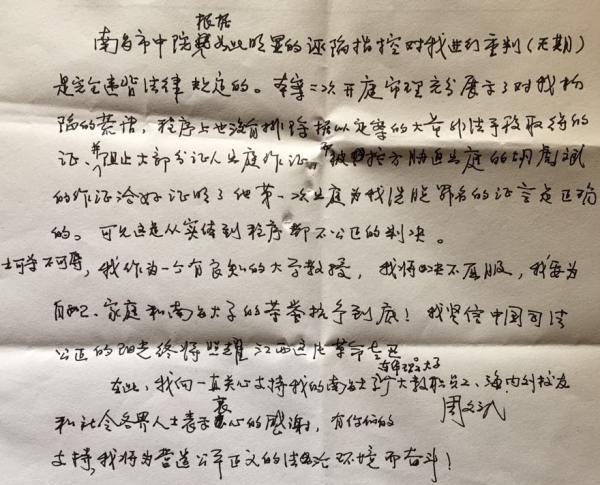 南昌市中院根据如此明显的诬陷指控对我进行重判(无期)
是完全违背法律规定的。本案二次开庭审理充分展示了对我构
陷的荒谬，程序上也没有排除据以定案的大量非法手段取得的
证、并阻止大部分证人出庭作证，而被控方胁迫出庭的胡彪斌
的作证恰好证明了他第一次出庭为我洗脱罪名的证言是正确
的。可见这是从实体到程序都不公正的判决。
士可杀不可辱，我作为一个有良知的大学教授，我将决不屈服，我要为
自己、家庭和南昌大学的荣誉抗争到底！我坚信中国司法
公正的阳光终将照耀江西这片革命
在此，我向一直关心支持我的南昌大学广大教职员工、海内外校友
和社会各界人士表示衷心的感谢，有你们的
支持，我将为营造公平正义的法治环境而奋斗！
周文斌